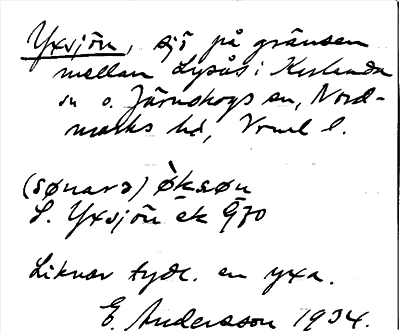 Yxsjön, sjö på gränsen
mellan Lysås i Karlanda
sn o. Järnskogs sn, Nord-
marks hd, Vrml l.
(sønara) òksøn
L. Yxsjön ek
Liknar tydl. en yxa.
E. Andersson 1934.